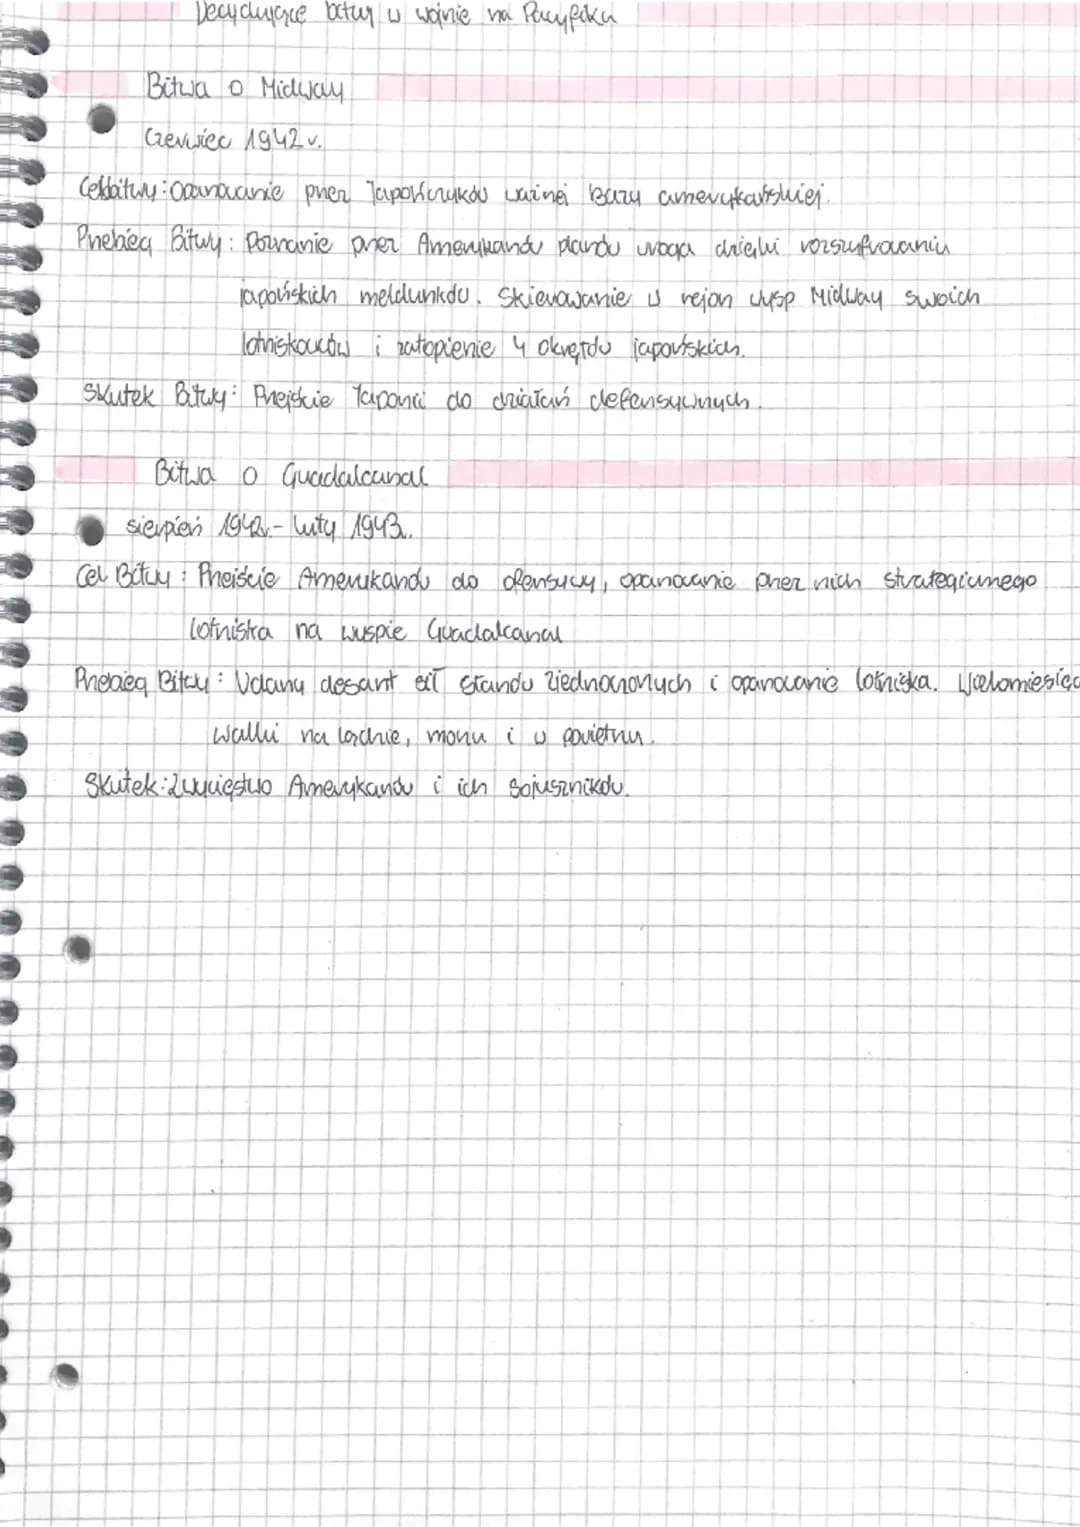 Decydujące bitwy w wojnie na Pacyfiku
Bitwa o Midway
Czerwiec 1942 r.
Cel bitwy: Opanowanie przez Japończyków ważnej Bazy amerykańskiej.
Przebieg Bitwy: Poznanie przez Amerykanów planów wroga dzięki rozszyfrowaniu
japońskich meldunków. Skierowanie w rejon wysp Midway swoich
lotniskowców i zatopienie 4 okrętów japońskich.
Skutek Bitwy: Przejście Japonii do działań defensywnych.
Bitwa o Guadalcanal
sierpień 1942r. - luty 1943r.
Cel Bitwy: Przejście Amerykanów do ofensywy, opanowanie przez nich strategicznego
lotniska na wyspie Guadalcanal
Przebieg Bitwy: Udany desant sił Stanów Zjednoczonych i opanowanie lotniska. Wielomiesięc
walki na lądzie, morzu i w powietrzu.
Skutek: Zwycięstwo Amerykanów i ich sojuszników.